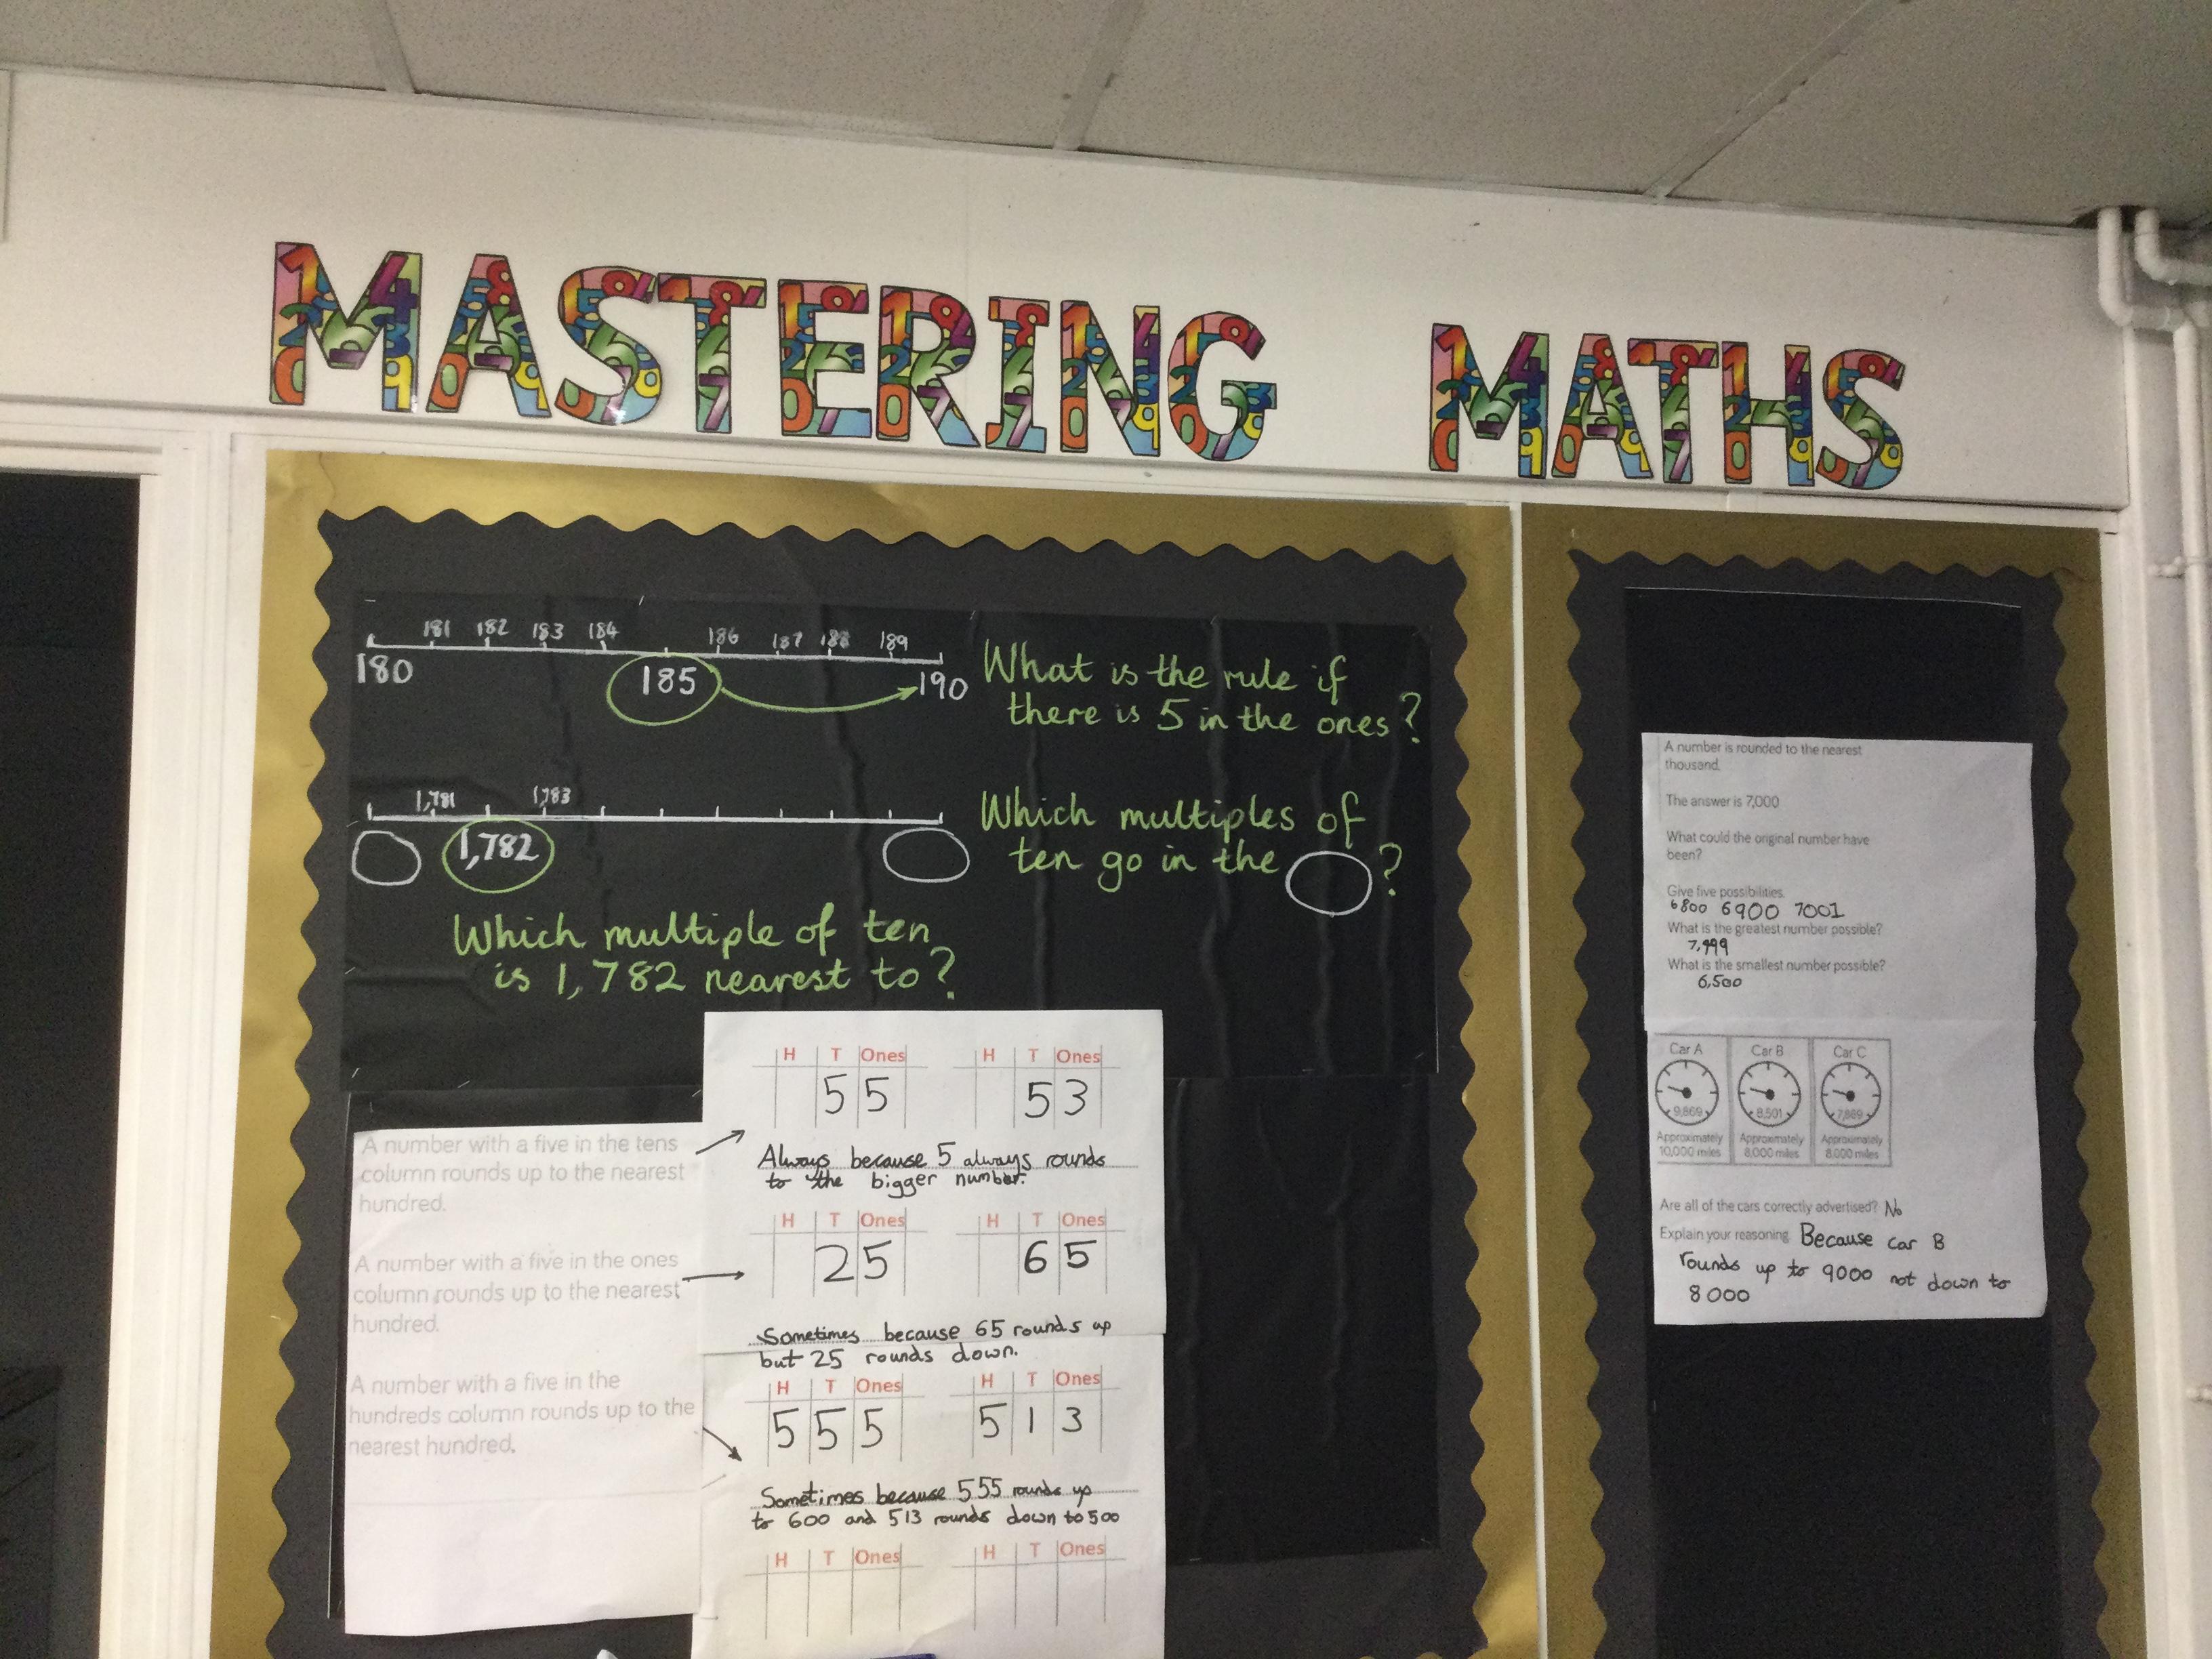 MASTERING MATHS
181 182 183 184 186 187 188 189
180 185 190
What is the rule if
there is 5 in the ones?
1,781 1,783
1,782
Which multiples of
ten go in the ?
Which multiple of ten
is 1,782 nearest to?
A number with a five in the tens
column rounds up to the nearest
hundred.
A number with a five in the ones
column rounds up to the nearest
hundred.
A number with a five in the
hundreds column rounds up to the
nearest hundred.
H T Ones H T Ones
5 5 5 3
Always because 5 always rounds
to the bigger number.
H T Ones H T Ones
2 5 6 5
Sometimes because 65 rounds up
but 25 rounds down.
H T Ones H T Ones
5 5 5 5 1 3
Sometimes because 555 rounds up
to 600 and 513 rounds down to 500
H T Ones H T Ones
A number is rounded to the nearest
thousand.
The answer is 7,000
What could the original number have
been?
Give five possibilities.
6800 6900 7001
What is the greatest number possible?
7,499
What is the smallest number possible?
6,500
Car A Car B Car C
9,869 8,501 7,869
Approximately Approximately Approximately
10,000 miles 8,000 miles 8,000 miles
Are all of the cars correctly advertised? No
Explain your reasoning. Because car B
rounds up to 9000 not down to
8000